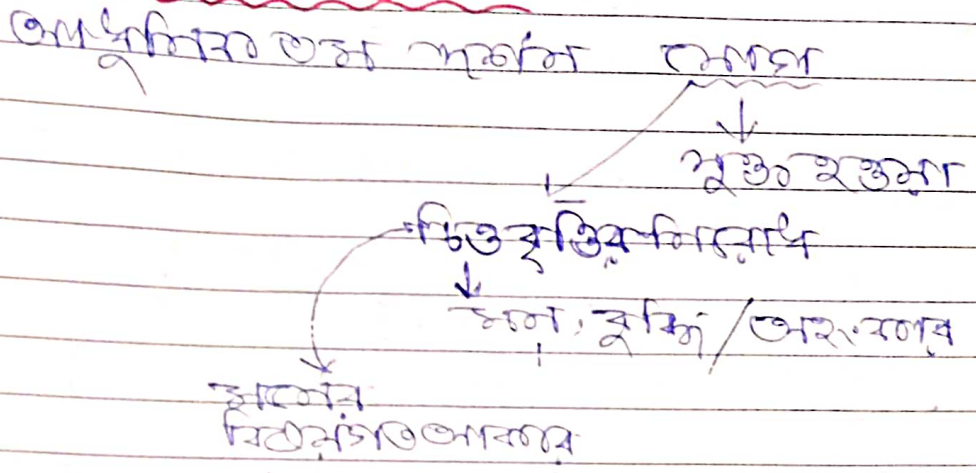 আধুনিকতম দর্শন যোগ
যুক্ত হওয়া
চিত্তবৃত্তির নিরোধ
মন, বুদ্ধি / অহংকার
মনের
বিষয়গত আকার